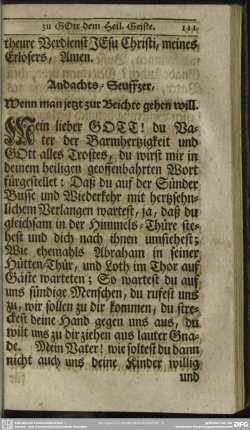 zu GOtt dem Heil. Geiste. 111.
theure Verdienst JEsu Christi, meines
Erlösers, Amen.
Andachts-Seufftzer,
Wenn man jetzt zur Beichte gehen will.
Mein lieber GOTT! du Va-
ter der Barmhertzigkeit und
GOtt alles Trostes, du wirst mir in
deinem heiligen geoffenbahrten Wort
fürgestellet: Daß du auf der Sünder
Busse und Wiederkehr mit hertzsehn-
lichem Verlangen wartest, ja, daß du
gleichsam in der Himmels-Thüre ste-
hest und dich nach ihnen umsiehest;
Wie ehemahls Abraham in seiner
Hütten-Thür, und Loth im Thor auf
Gäste warteten; So wartest du auf
uns sündige Menschen, du rufest uns
zu, wir sollen zu dir kommen, du stre-
ckest deine Hand gegen uns aus, du
wilt uns zu dir ziehen aus lauter Gna-
de. Mein Vater! wie soltest du dann
nicht auch uns deine Kinder willig
und